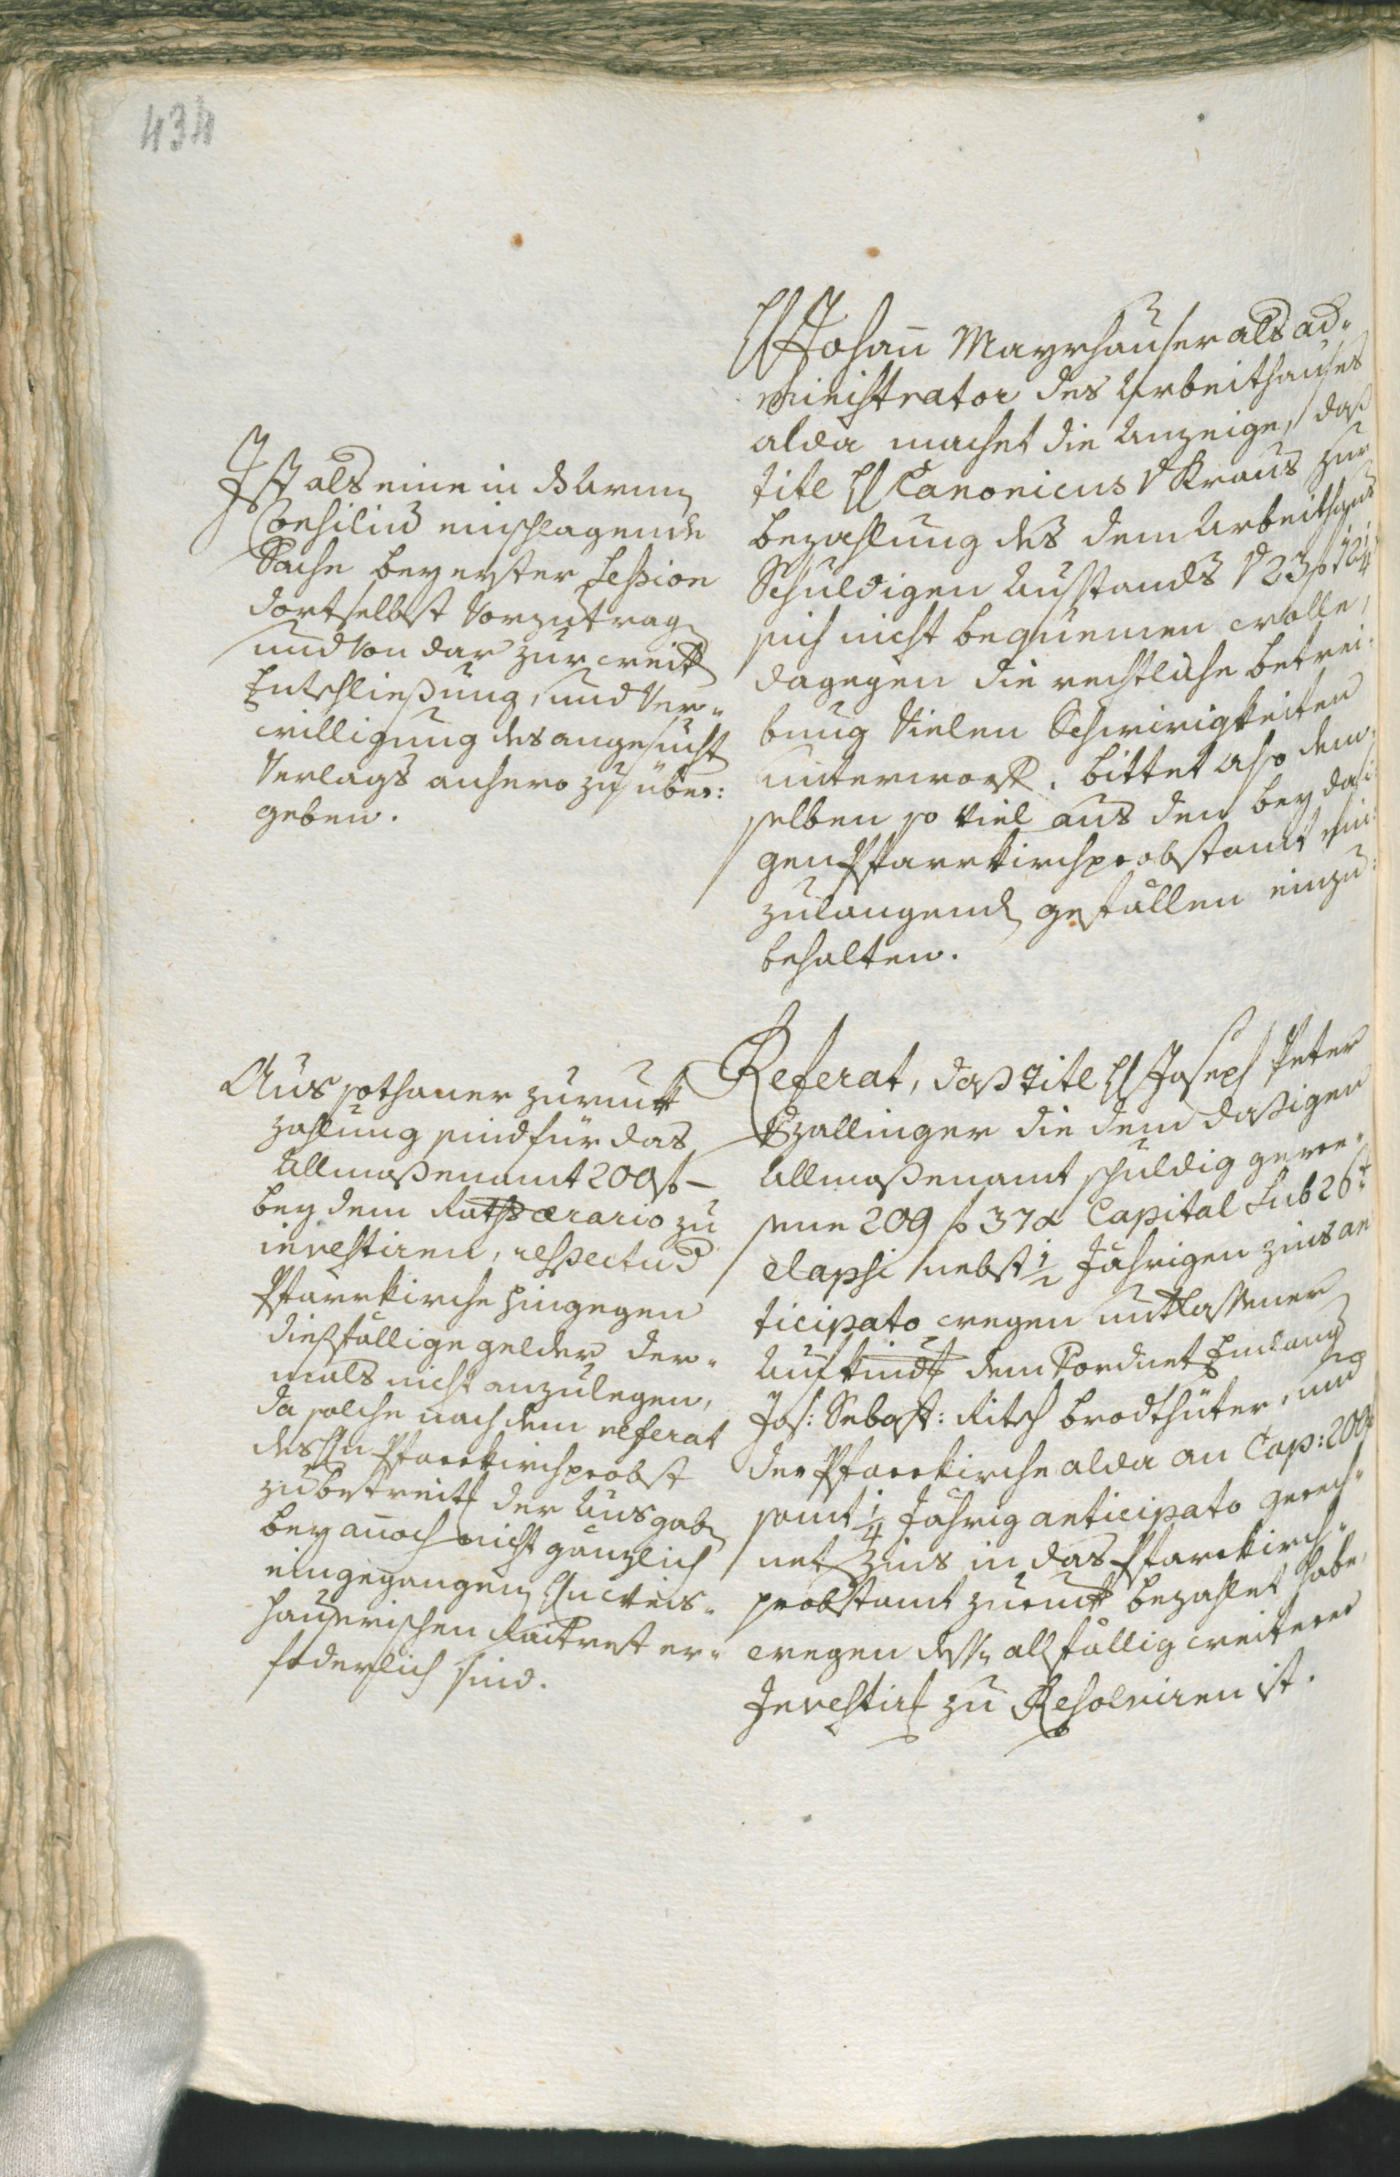 434
H Johann Mayrhauser als ad-
ministrator des Arbeithauses
alda machet die Anzeige, daß
titl H Canonicus v Kraus zur
bezahlung des dem Arbeithaus
Schuldigen Ausstands
sich nicht bequemen wolle,
dagegen die rechtliche betrei-
bung Vielen Schwirigkeiten
unterworfen. bittet also dem-
selben so viel aus den bey dasi-
gen Pfarrkirchprobstamt ein
zulangend gefällen einzu-
behalten.
Ist als eine in das Armen
Consilium einschlagende
Sache bey erster Session
dortselbst Vorzutragen
und von dar zur weitern
Entschließung, und Ver-
willigung des angesucht
Verlags anhero zu über-
geben.
Referat, daß titl H Joseph Peter
Zallinger die dem dasigen
Allmoßenamt schuldig gewe-
sene 209 f 37 x Capital sub 26t
elapsi nebst 1/2 Jährigen zins an
ticipato wegen unterlassener
Aufkündt dem
Jos: Sebast: Ritsch brodhüter, und
der Pfarrkirche alda an Cap: 200 f
samt 1/4 Jährig anticipato gerech-
net Zins in das Pfarrkirch-
probstamt zuruk bezahlet habe,
wegen dessen allfällig weiterer
Investirung zu Resolviren ist.
Aus sothaner zuruk
zahlung sind für das
Allmoßenamt 200 f –
bey dem Raths ærario zu
investiren, respectu der
Pfarrkirche hingegen
dießfällige gelder der-
mals nicht anzulegen,
da solche nach dem referat
des Hn Pfarrkirchprobst
zu bestreitung der Ausgaben
bey annoch nicht gänzlich
eingegangen
hauserischen Raitrest er-
foderlich sind.